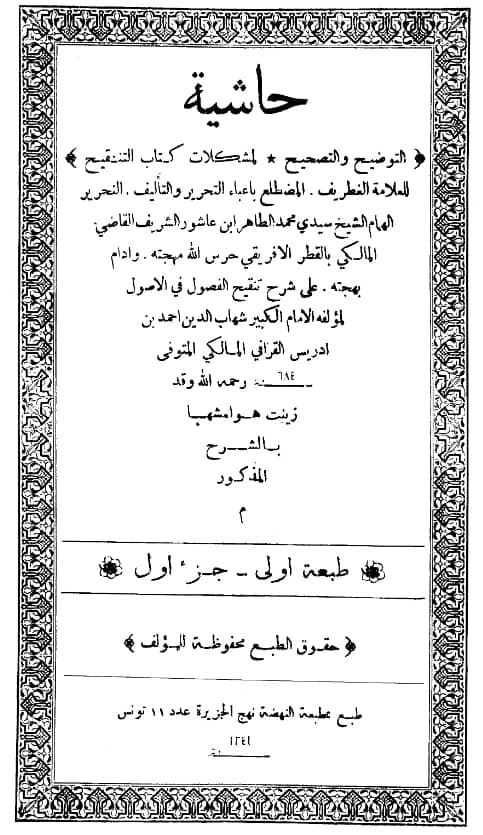 حاشية
﴿ التوضيح والتصحيح ★ لمشكلات كتاب التنقيح ﴾
للعلامة الغطريف . المضطلع باعباء التحرير والتأليف . النحرير
الهمام الشيخ سيدي محمد الطاهر ابن عاشور الشريف القاضي
المالكي بالقطر الافريقي حرس الله مهجته . وادام
بهجته . على شرح تنقيح الفصول في الاصول
لمؤلفه الامام الكبير شهاب الدين احمد بن
ادريس القرافي المالكي المتوفى
سنة ٦٨٤ رحمه الله وقد
زينت هوامشها
بالشرح
المذكور
م
طبعة اولى - جزء اول
﴿ حقوق الطبع محفوظة للمؤلف ﴾
طبع بمطبعة النهضة نهج الجزيرة عدد ١١ تونس
سنة ١٣٤١